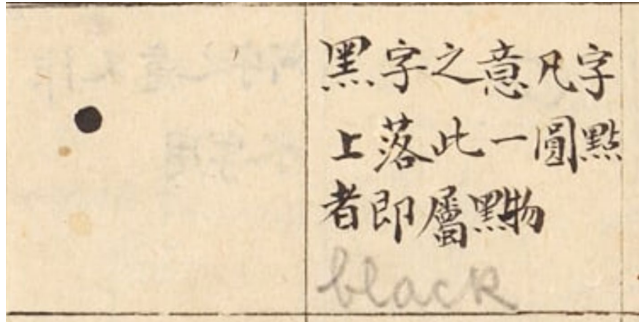 黑字之意凡字
上落此一圓點
者即屬黑物
black